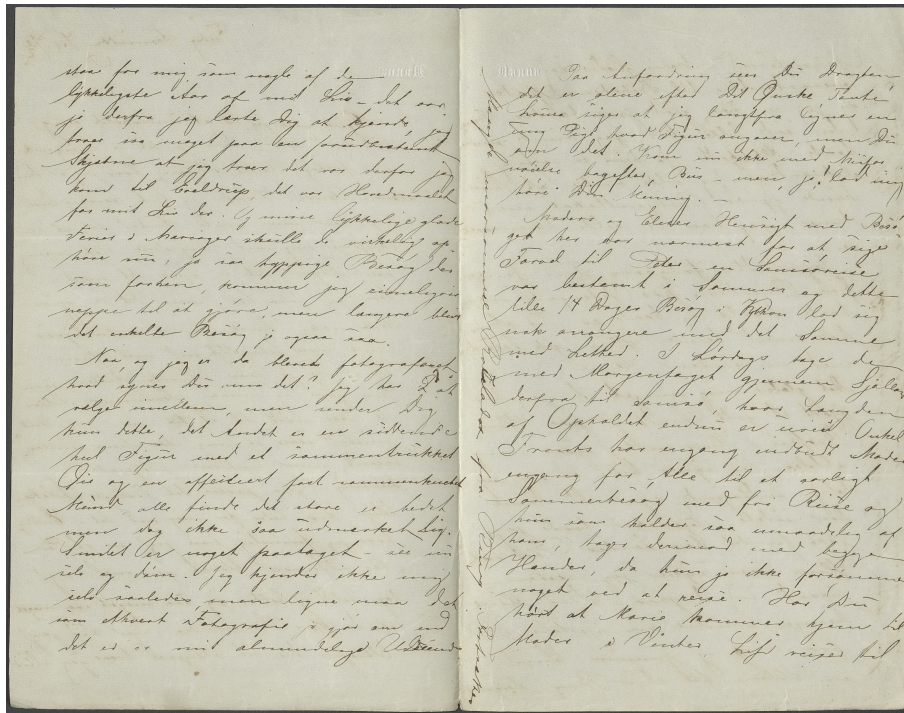 staa for mig som nogle af de
lykkeligste Aar af mit Liv – det var
jo derfra jeg lærte Dig at kjende, jeg
troer saa meget paa en forudbestemt
Skjæbne at jeg troer det var derfor jeg
kom til det var Hovedmaalet
for mit Liv der. Og mine lykkelige glade
Ferier i Mariager skulle de virkelig op-
høre nu, ja saa hyppige Besøg der
som forhen, kommer jeg
neppe til at gjøre, men længere bliver
det enkelte Besøg jo ogsaa saa.
Naa, og jeg er da blevet fotograferet,
hvad synes Du om det? jeg har 2 at
vælge imellem, men sender Dig
kun dette, det Andet er en siddende
hel Figur med et sammentrukket
Øie og en affecteret fast
Mund alle finde det store er bedst
men dog ikke saa udmærket Lig.
Smilet er noget paataget – see nu
selv og døm. Jeg kjender ikke mig
selv saaledes men ligne maa det
som Ethvert Fotografie gjør om end
det er er min almindelige Udseende
Paa Anfordring seer Du Dragten
det er alene efter Dit Ønske Tante
siger at jeg langtfra egner en
ung Pige hvad Figur angaaer, men Du
om det. Kom nu ikke med Misfor-
nøielse bagefter, – men, jo! lad mig
høre Din Mening. –
Moders og Elises Hensigt med Besø-
get her var nærmest for at sige
Farvel til Peter – en Samsøreise
var bestemt i Sommer og dette
lille 14 Dages Besøg i lod sig
nok arrangere med det Samme
med Lethed. I Lørdags toge de
med Morgentoget gjennem Sjælland
derfra til Samsø, hvor Længden
af Opholdet endnu er uvis. Onkel
Frants har engang indbudt Moder
engang for Alle til et aarligt
Sommerbesøg med fri Reise og
hun som holder saa umaadelig af
ham, tager derimod med begge
Hænder, da hun jo ikke forsømmer
noget ved at reise. Har Du
hørt at Marie kommer hjem til
Moder i Vinter, reiser til
Mange fra